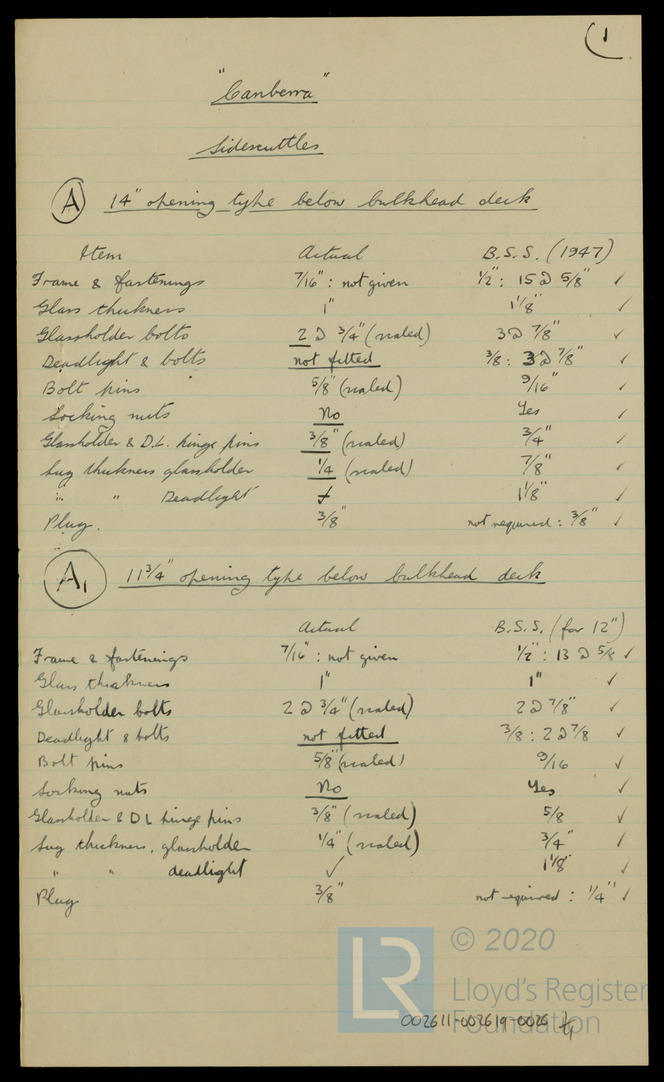 1
"Canberra"
Sidescuttles
A 14" opening type below bulkhead deck
Item Actual B.S.S. (1947)
Frame & fastenings 7/16" : not given 1/2" : 15 @ 5/8" ✓
Glass thickness 1" 1 1/8" ✓
Glassholder bolts 2 @ 3/4" (scaled) 3 @ 7/8" ✓
Deadlight & bolts not fitted 3/8 : 3 @ 7/8" ✓
Bolt pins 5/8" (scaled) 9/16" ✓
Locking nuts No Yes ✓
Glassholder & D.L. hinge pins 3/8" (scaled) 3/4" ✓
Lug thickness glassholder 1/4 (scaled) 7/8" ✓
" " Deadlight 1 1/8" ✓
Plug. 3/8" not required : 3/8" ✓
A1 11 3/4" opening type below bulkhead deck
Actual B.S.S. (for 12")
Frame & fastenings 7/16" : not given 1/2" : 13 @ 5/8 ✓
Glass thickness 1" 1" ✓
Glassholder bolts 2 @ 3/4" (scaled) 2 @ 7/8" ✓
Deadlight & bolts not fitted 3/8 : 2 @ 7/8 ✓
Bolt pins 5/8" (scaled) 9/16 ✓
Locking nuts No Yes ✓
Glassholder & D L hinge pins 3/8" (scaled) 5/8 ✓
Lug thickness, glassholder 1/4" (scaled) 3/4" ✓
" " deadlight ✓ 1 1/8" ✓
Plug 3/8" not required : 1/4" ✓
LR © 2020
Lloyd's Register
Foundation
002611-002619-0026